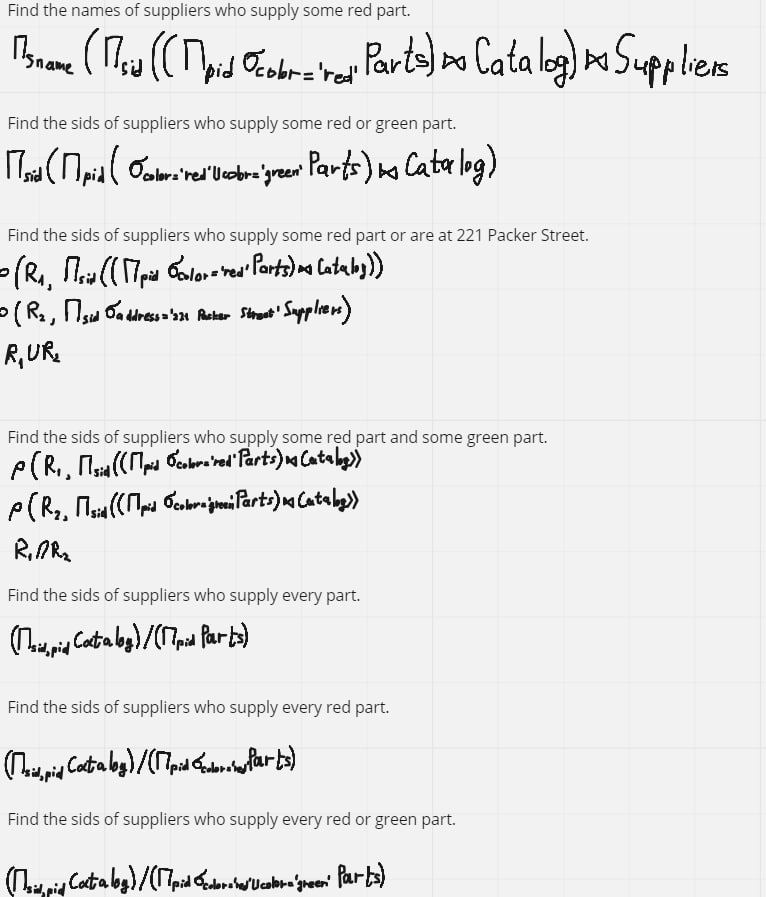 Find the names of suppliers who supply some red part.
Πsname(Πsid((Πpid σcolor='red' Parts)⋈Catalog)⋈Suppliers
Find the sids of suppliers who supply some red or green part.
Πsid(Πpid(σcolor='red'∪color='green' Parts)⋈Catalog)
Find the sids of suppliers who supply some red part or are at 221 Packer Street.
ρ(R1, Πsid((Πpid σcolor='red' Parts)⋈Catalog))
ρ(R2, Πsid σaddress='221 Packer Street' Suppliers)
R1∪R2
Find the sids of suppliers who supply some red part and some green part.
ρ(R1, Πsid((Πpid σcolor='red' Parts)⋈Catalog))
ρ(R2, Πsid((Πpid σcolor='green' Parts)⋈Catalog))
R1∩R2
Find the sids of suppliers who supply every part.
(Πsid,pid Catalog)/(Πpid Parts)
Find the sids of suppliers who supply every red part.
(Πsid,pid Catalog)/(Πpid σcolor='red' Parts)
Find the sids of suppliers who supply every red or green part.
(Πsid,pid Catalog)/(Πpid σcolor='red'∪color='green' Parts)